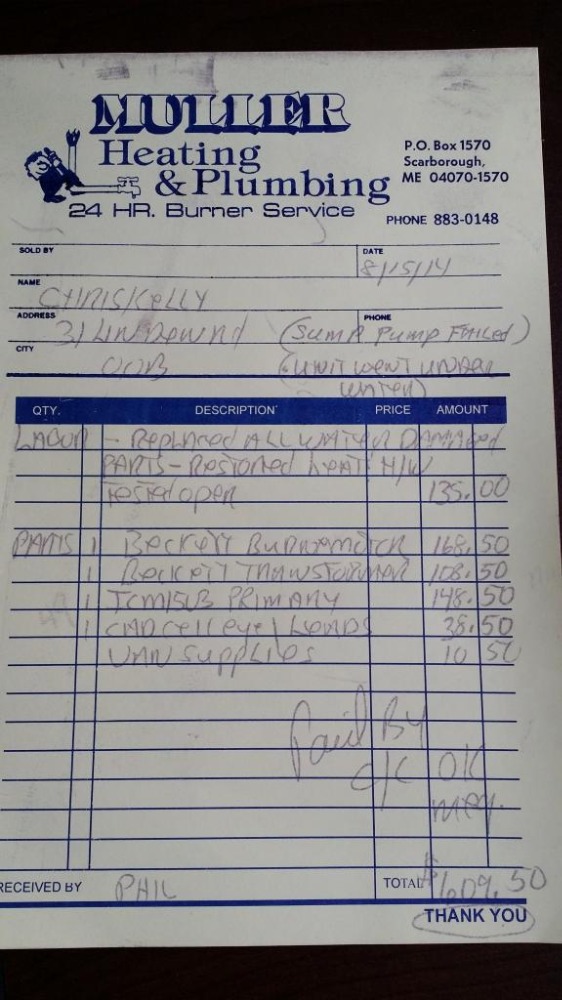 MULLER
Heating
& Plumbing
24 HR. Burner Service
P.O. Box 1570
Scarborough,
ME 04070-1570
PHONE 883-0148
SOLD BY
DATE
8/15/14
NAME
CHRIS KELLY
ADDRESS
31
PHONE
(SUMP PUMP FAILED)
CITY
OOB
(UNIT WENT UNDER
WATER)
QTY. DESCRIPTION PRICE AMOUNT
LABOR - REPLACED ALL WATER DAMAGED
PARTS - RESTORED HEAT/H/W
TESTED OPER 135.00
PARTS 1 BECKETT BURNER MOTOR 168.50
1 BECKETT TRANSFORMER 108.50
1 PRIMARY 148.50
1 CAD CELL EYE/LEADS 38.50
VAN SUPPLIES 10 50
Paid By
OK
RECEIVED BY PHIL
TOTAL $ 609.50
THANK YOU